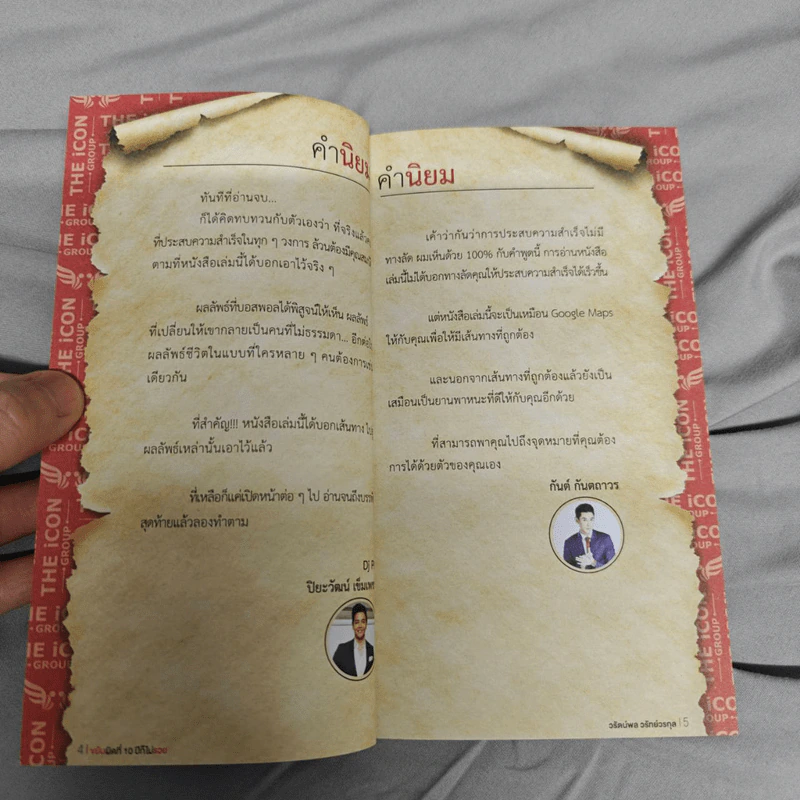 คำนิยม
ทันทีที่อ่านจบ...
ก็ได้คิดทบทวนกับตัวเองว่า ที่จริงแล้ว
ที่ประสบความสำเร็จในทุก ๆ วงการ ล้วนต้องมี
ตามที่หนังสือเล่มนี้ได้บอกเอาไว้จริง ๆ
ผลลัพธ์ที่บอสพอลได้พิสูจน์ให้เห็น ผลลัพธ์
ที่เปลี่ยนให้เขากลายเป็นคนที่ไม่ธรรมดา...
ผลลัพธ์ชีวิตในแบบที่ใครหลาย ๆ คนต้องการ
เดียวกัน
ที่สำคัญ!!! หนังสือเล่มนี้ได้บอกเส้นทาง
ผลลัพธ์เหล่านั้นเอาไว้แล้ว
ที่เหลือก็แค่เปิดหน้าต่อ ๆ ไป อ่านจนถึง
สุดท้ายแล้วลองทำตาม
DJ
ปิยะวัฒน์
4 | ขยันผิดที่ 10 ปีก็ไม่รวย
คำนิยม
เค้าว่ากันว่าการประสบความสำเร็จไม่มี
ทางลัด ผมเห็นด้วย 100% กับคำพูดนี้ การอ่านหนังสือ
เล่มนี้ไม่ได้บอกทางลัดคุณให้ประสบความสำเร็จได้เร็วขึ้น
แต่หนังสือเล่มนี้จะเป็นเหมือน Google Maps
ให้กับคุณเพื่อให้มีเส้นทางที่ถูกต้อง
และนอกจากเส้นทางที่ถูกต้องแล้วยังเป็น
เสมือนเป็นยานพาหนะที่ดีให้กับคุณอีกด้วย
ที่สามารถพาคุณไปถึงจุดหมายที่คุณต้อง
การได้ด้วยตัวของคุณเอง
กันต์ กันตถาวร
วรัตน์พล วรัทย์วรกุล | 5
THE iCON
GROUP
THE iCON
GROUP
THE iCON
GROUP
THE iCON
GROUP